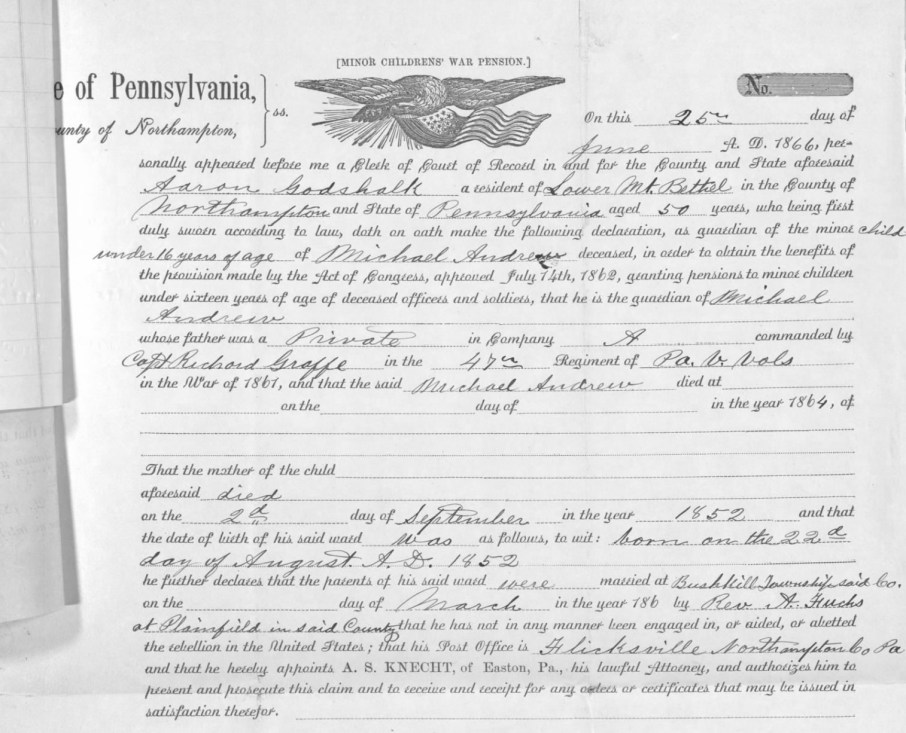 [MINOR CHILDRENS' WAR PENSION.]
e of Pennsylvania, } ss.
unty of Northampton,
No.
On this 25th day of
June A. D. 1866, per-
sonally appeared before me a Clerk of Court of Record in and for the County and State aforesaid
Aaron Godshalk a resident of Lower Mt. Bethel in the County of
Northampton and State of Pennsylvania aged 50 years, who being first
duly sworn according to law, doth on oath make the following declaration, as guardian of the minor child
under 16 years of age of Michael Andrew deceased, in order to obtain the benefits of
the provision made by the Act of Congress, approved July 14th, 1862, granting pensions to minor children
under sixteen years of age of deceased officers and soldiers, that he is the guardian of Michael
Andrew
whose father was a Private in Company A commanded by
Capt Richard Graffe in the 47th Regiment of Pa. V. Vols
in the War of 1861, and that the said Michael Andrew died at
on the day of in the year 1864, of
That the mother of the child
aforesaid died
on the 2d day of September in the year 1852 and that
the date of birth of his said ward was as follows, to wit: born on the 22d
day of August A. D. 1852
he further declares that the parents of his said ward were married at Bushkill Township said Co.
on the day of March in the year 186 by Rev A. Fuchs
at Plainfield in said County that he has not in any manner been engaged in, or aided, or abetted
the rebellion in the United States; that his Post Office is Flicksville Northampton Co Pa
and that he hereby appoints A. S. KNECHT, of Easton, Pa., his lawful Attorney, and authorizes him to
present and prosecute this claim and to receive and receipt for any orders or certificates that may be issued in
satisfaction therefor.